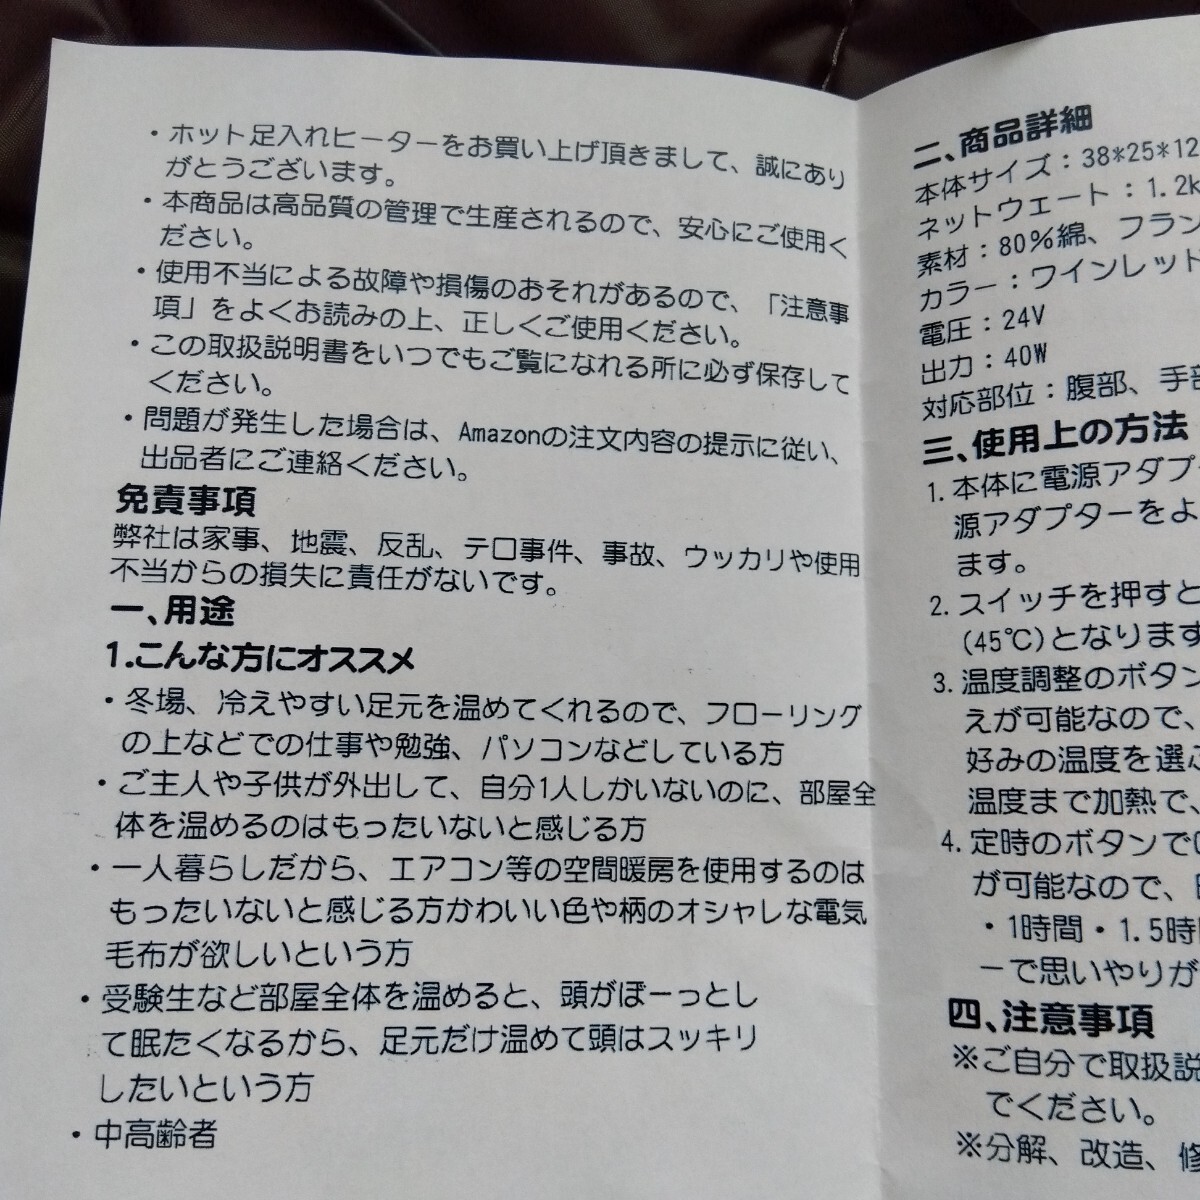 ・ホット足入れヒーターをお買い上げ頂きまして、誠にあり
がとうございます。
・本商品は高品質の管理で生産されるので、安心にご使用く
ださい。
・使用不当による故障や損傷のおそれがあるので、「注意事
項」をよくお読みの上、正しくご使用ください。
・この取扱説明書をいつでもご覧になれる所に必ず保存して
ください。
・問題が発生した場合は、Amazonの注文内容の提示に従い、
出品者にご連絡ください。
免責事項
弊社は家事、地震、反乱、テロ事件、事故、ウッカリや使用
不当からの損失に責任がないです。
一、用途
1.こんな方にオススメ
・冬場、冷えやすい足元を温めてくれるので、フローリング
の上などでの仕事や勉強、パソコンなどしている方
・ご主人や子供が外出して、自分1人しかいないのに、部屋全
体を温めるのはもったいないと感じる方
・一人暮らしだから、エアコン等の空間暖房を使用するのは
もったいないと感じる方かわいい色や柄のオシャレな電気
毛布が欲しいという方
・受験生など部屋全体を温めると、頭がぼーっとし
て眠たくなるから、足元だけ温めて頭はスッキリ
したいという方
・中高齢者
二、商品詳細
本体サイズ：38*25*12
ネットウェート：1.2k
素材：80%綿、フラン
カラー：ワインレット
電圧：24V
出力：40W
対応部位：腹部、手部
三、使用上の方法
1.本体に電源アダプ
源アダプターをよ
ます。
2.スイッチを押すと
(45℃)となります
3.温度調整のボタン
えが可能なので、
好みの温度を選ぶ
温度まで加熱で、
4.定時のボタンで
が可能なので、
・1時間・1.5時
ーで思いやりが
四、注意事項
※ご自分で取扱説
でください。
※分解、改造、修